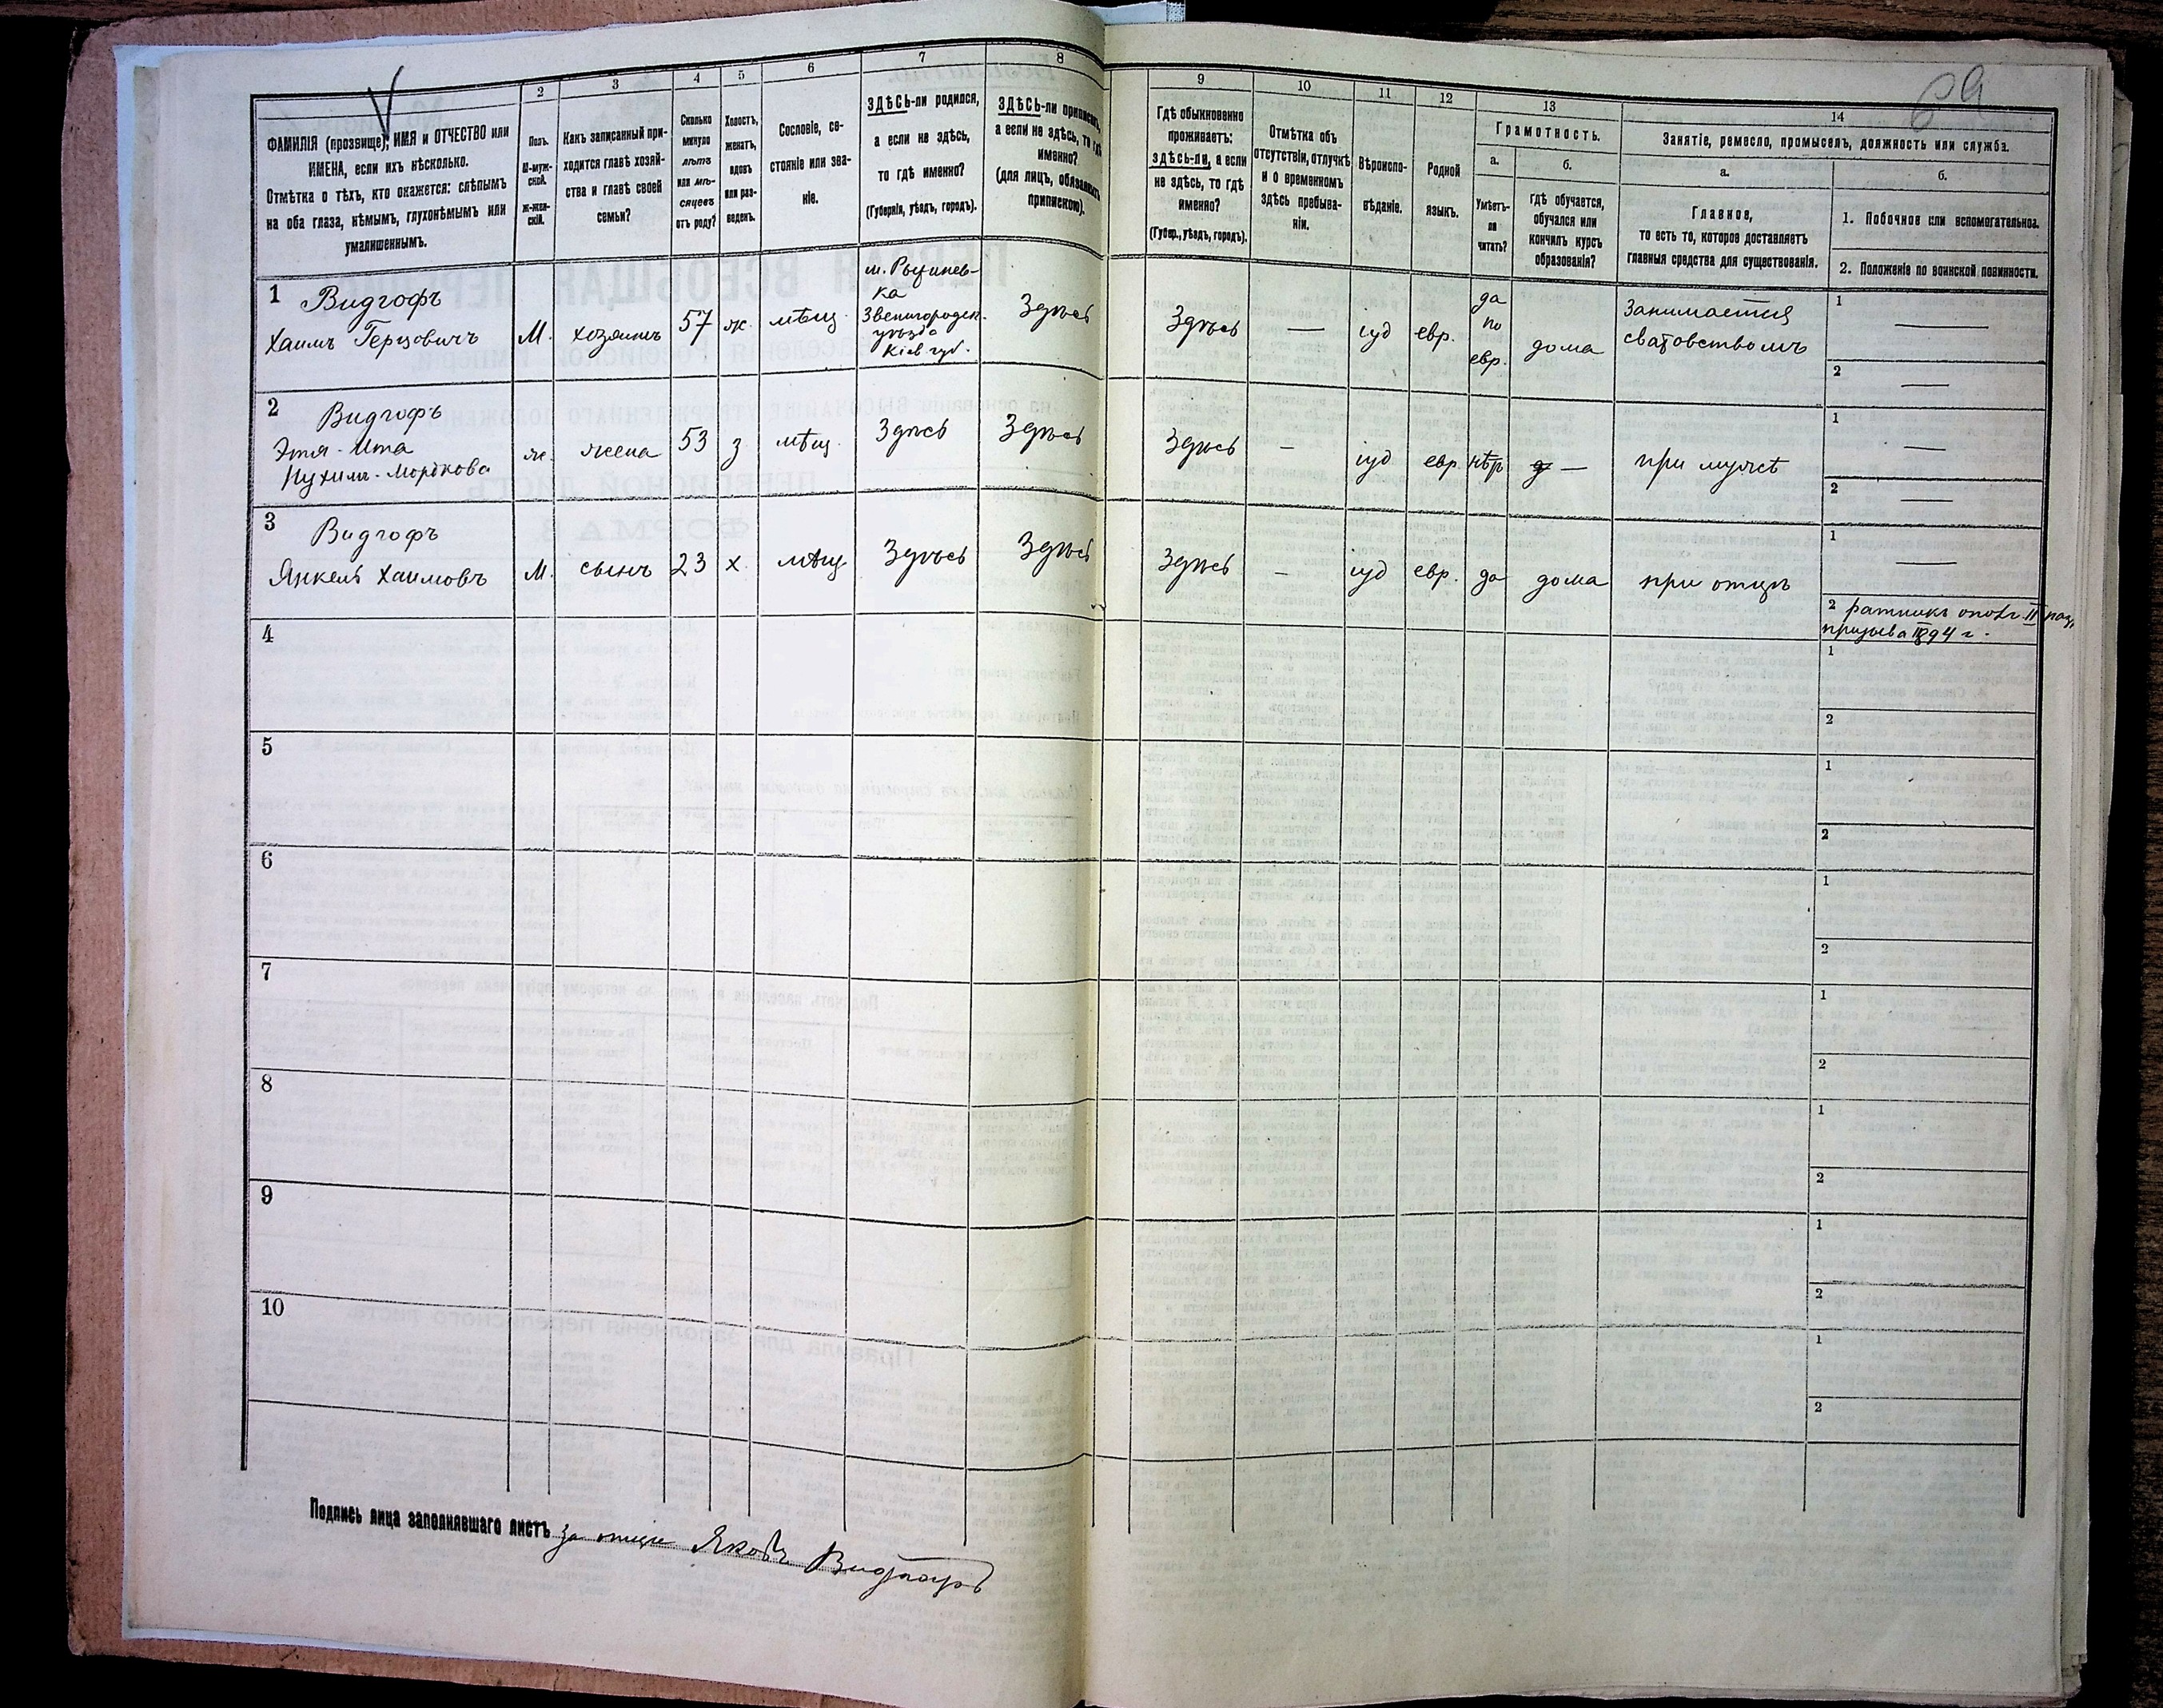 69
2
3
4
5
6
7
8
9
10
11
12
13
14
ФАМИЛІЯ (прозвище), ИМЯ и ОТЧЕСТВО или
ИМЕНА, если ихъ нѣсколько.
Отмѣтка о тѣхъ, кто окажется: слѣпымъ
на оба глаза, нѣмымъ, глухонѣмымъ или
умалишеннымъ.
Полъ.
М-муж-
ской.
Ж-жен-
скій.
Какъ записанный при-
ходится главѣ хозяй-
ства и главѣ своей
семьи?
Сколько
минуло
лѣтъ
или мѣ-
сяцевъ
отъ роду?
Холостъ,
женатъ,
вдовъ
или раз-
веденъ.
Сословіе, со-
стояніе или зва-
ніе.
ЗДѢСЬ-ли родился,
а если не здѣсь,
то гдѣ именно?
(Губернія, уѣздъ, городъ).
ЗДѢСЬ-ли приписанъ,
а если не здѣсь, то гдѣ
именно?
(для лицъ, обязанныхъ
припискою).
Гдѣ обыкновенно
проживаетъ:
здѣсь-ли, а если
не здѣсь, то гдѣ
именно?
(Губер., уѣздъ, городъ).
Отмѣтка объ
отсутствіи, отлучкѣ
и о временномъ
здѣсь пребыва-
ніи.
Вѣроиспо-
вѣданіе.
Родной
языкъ.
Грамотность.
а.
б.
Умѣетъ-
ли
читать?
гдѣ обучается,
обучался или
кончилъ курсъ
образованія?
Занятіе, ремесло, промыселъ, должность или служба.
а.
б.
Главное,
то есть то, которое доставляетъ
главныя средства для существованія.
1. Побочное или вспомогательное.
2. Положеніе по воинской повинности.
1
Видгофъ
Хаимъ Герцовичъ
М.
хозяинъ
57
ж.
мѣщ.
ка
Звенигородск.
уѣзда
Кіев губ.
Здѣсь
Здѣсь
—
іуд
евр.
да
по
евр.
дома
Занимается
сватовствомъ
1
—
2
—
2
Видгофъ
Этя-Ита
ж.
жена
53
з
мѣщ.
Здѣсь
Здѣсь
Здѣсь
—
іуд
евр.
нѣтъ
—
при мужѣ
1
—
2
—
3
Видгофъ
Янкель Хаимовъ
М.
сынъ
23
х.
мѣщ
Здѣсь
Здѣсь
Здѣсь
—
іуд
евр.
да
дома
при отцѣ
1
—
2 ратникъ опол. II раз.
призыва 1894 г.
4
1
2
5
1
2
6
1
2
7
1
2
8
1
2
9
1
2
10
1
2
Подпись лица заполнявшаго листъ за отца Яковъ Видгофъ